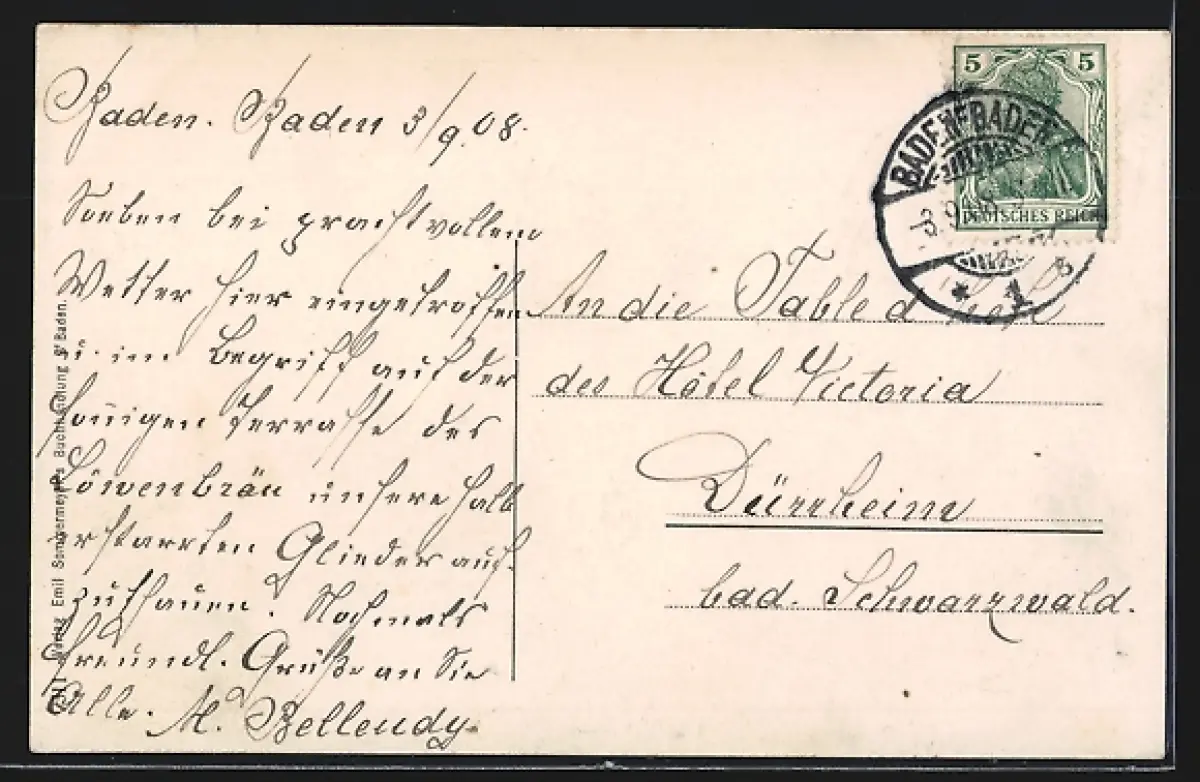 Baden-Baden 3/9.08.
Soeben bei prachtvollem
Wetter hier eingetroffen
u. im Begriff auf der
sonnigen Terrasse des
Löwenbräu unsere halb
erstarrten Glieder auf-
zuthauen. Nochmals
freundl. Grüße an Sie
Alle. M.
An die Table d'
des Hôtel Victoria
Dürrheim
bad. Schwarzwald.
5 5
DEUTSCHES REICH
BADEN-BADEN
3.9.08
* 1
Verlag Emil Sommermeyer's Buchhandlung B'Baden.